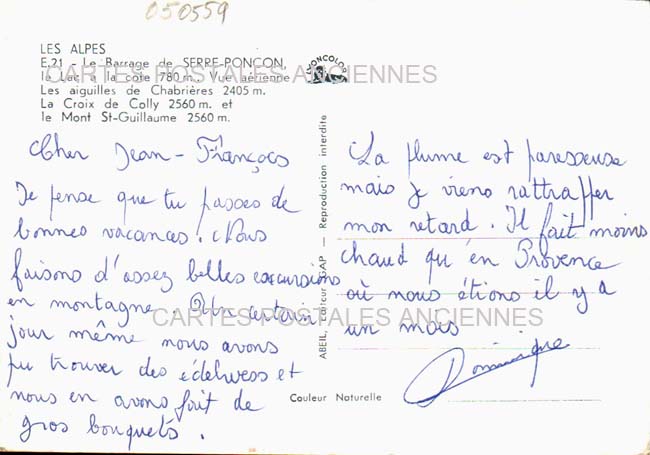 050559
LES ALPES
E.21 - Le Barrage de SERRE-PONÇON,
le Lac à la cote 780 m. Vue aérienne
Les aiguilles de Chabrières 2405 m.
La Croix de Colly 2560 m. et
le Mont St-Guillaume 2560 m.
LYONCOLOR
CARTES POSTALES ANCIENNES
Cher Jean-François
Je pense que tu passes de
bonnes vacances. Nous
faisons d'assez belles excursions
en montagne. Un certain
jour même nous avons
pu trouver des édelweiss et
nous en avons fait de
gros bouquets.
ABEIL, Editeur GAP — Reproduction interdite
La plume est paresseuse
mais je viens rattraffer
mon retard. Il fait moins
chaud qu'en Provence
où nous étions il y a
un mois
Dominique
CARTES POSTALES ANCIENNES
Couleur Naturelle